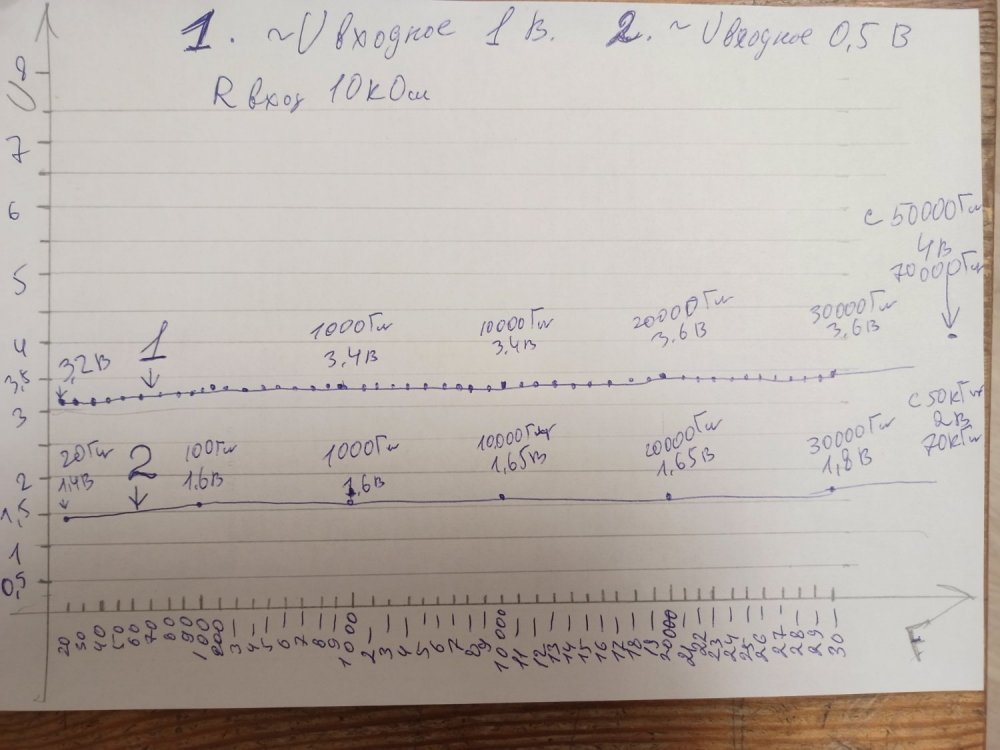 1. ~U входное 1 В. 2. ~U входное 0,5 В
R вход 10 кОм
U
8
7
6
5
4
3,5
3
2
1,5
1
0,5
с 50000Гц
4В
70000Гц
3,2В
1
1000Гц
3,4В
10000Гц
3,4В
20000Гц
3,6В
30000Гц
3,6В
с 50кГц
2В
70кГц
20Гц
1,4В
2
100Гц
1,6В
1000Гц
1,6В
10000Гц
1,65В
20000Гц
1,65В
30000Гц
1,8В
20 30 40 50 60 70 80 90 100 200 3— 4— 5— 6— 7— 8— 9— 1000 2— 3— 4— 5— 6— 7— 8— 9— 10000 11— 12— 13— 14— 15— 16— 17— 18— 19— 20000 21— 22— 23— 24— 25— 26— 27— 28— 29— 30—
F